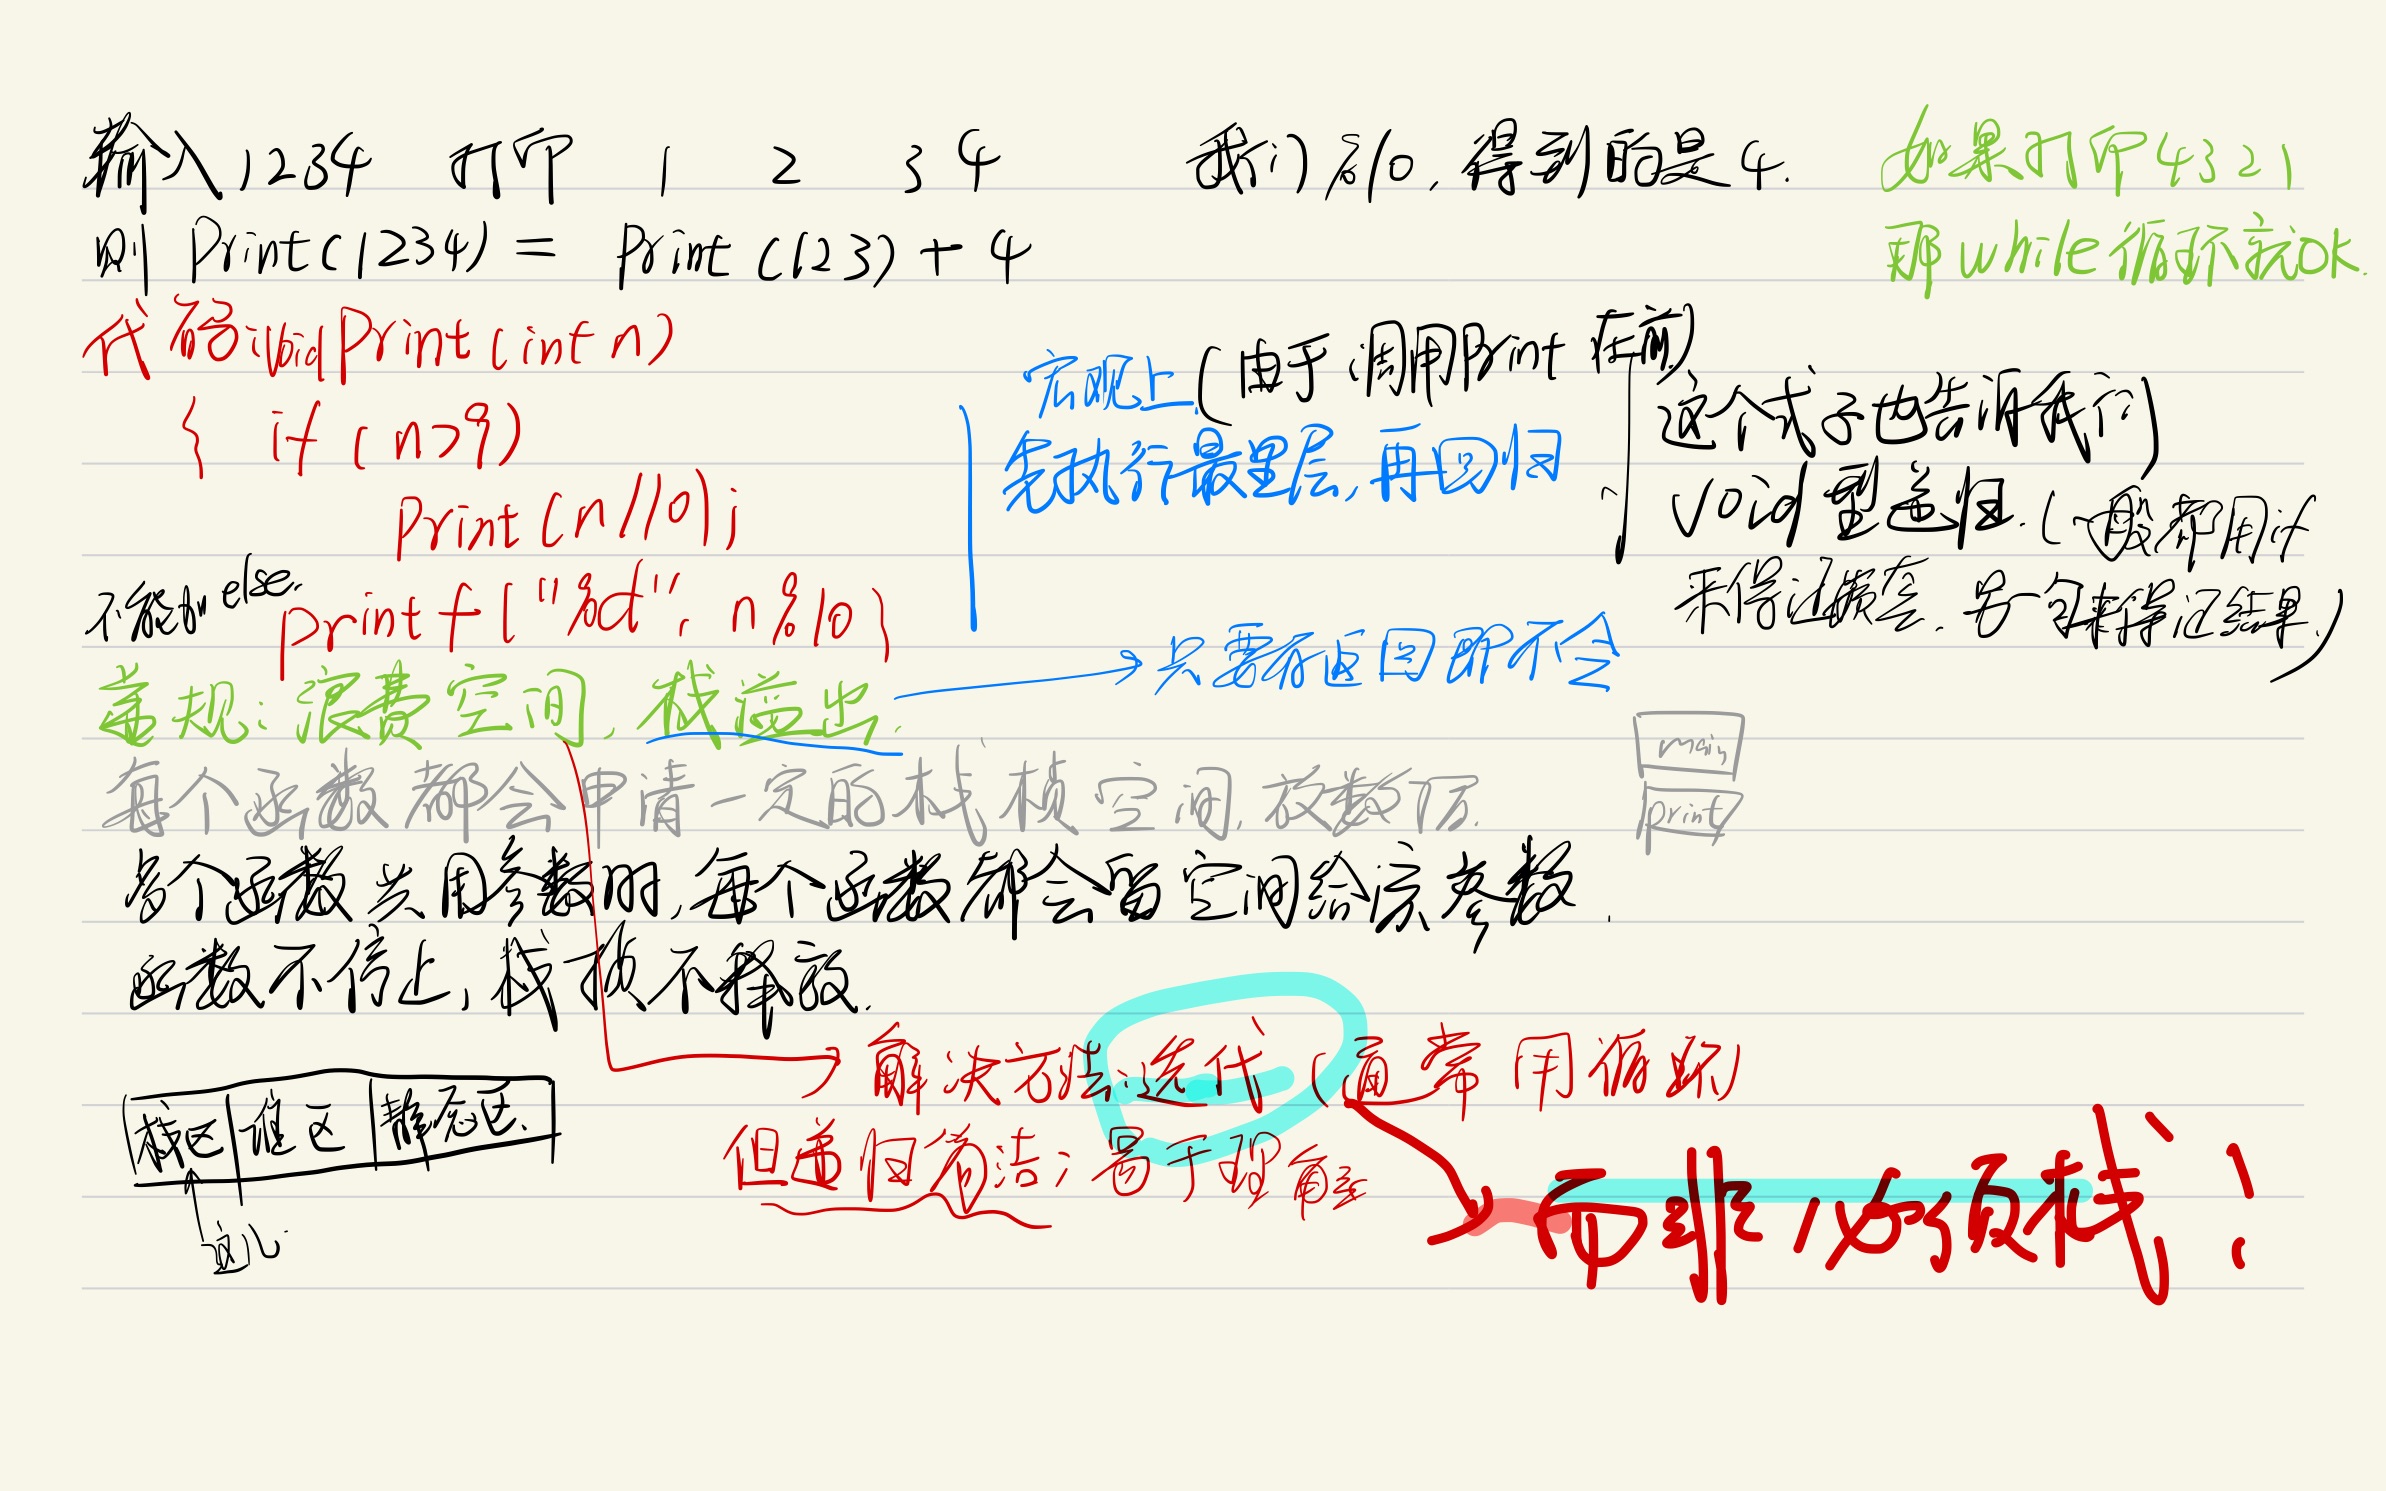 输入1234 打印 1 2 3 4 我们%10,得到的是4. 如果打印4321
则 Print(1234) = Print(123)+4 那while循环就OK.
代码:void Print(int n)
{ if (n>9)
宏观上(由于调用Print在前)
先执行最里层,再回归
这个式子也告诉我们
void型递归.(一般都用if
Print(n/10);
不能加else.
printf("%d", n%10)
另一句来得证结果.)
只要有返回即不会
常规:浪费空间,栈溢出.
每个函数都会申请一定的栈桢空间,放数据.
main
print
多个函数共用参数时,每个函数都会留空间给该参数.
函数不停止,栈桢不释放.
解决方法:迭代(通常用循环)
栈区 堆区 静态区.
这儿.
但递归简洁;易于理解
而非必须栈!